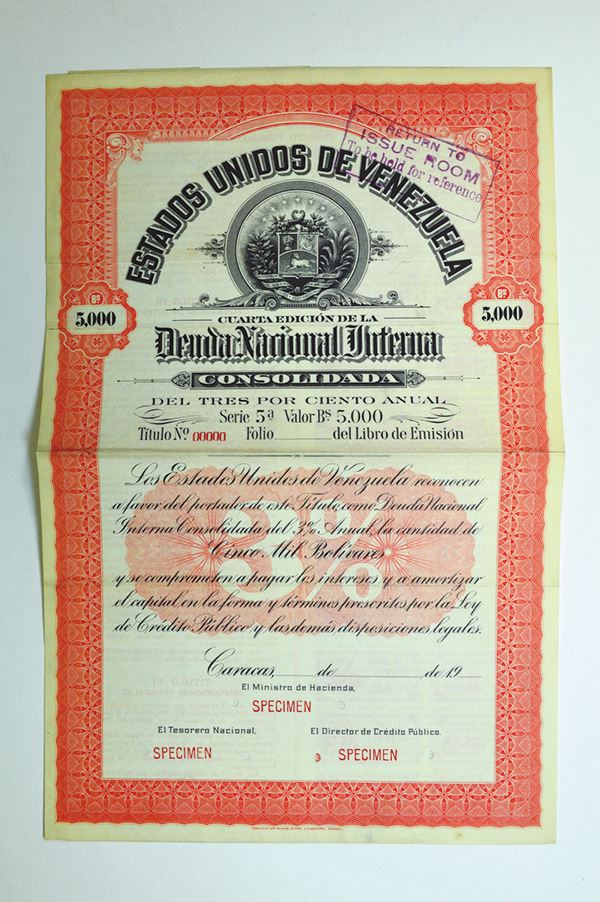 RETURN TO
ISSUE ROOM
To be held for reference
ESTADOS UNIDOS DE VENEZUELA
Bs
5,000
Bs
5,000
CUARTA EDICIÓN DE LA
Deuda Nacional Interna
CONSOLIDADA
DEL TRES POR CIENTO ANUAL
Serie 5ª Valor Bs 5,000
Título Nº 00000 Folio del Libro de Emisión
3%
Los Estados Unidos de Venezuela reconocen
a favor del portador de este Título, como Deuda Nacional
Interna Consolidada del 3% Anual, la cantidad de
Cinco Mil Bolívares
y se comprometen a pagar los intereses y a amortizar
el capital en la forma y términos prescritos por la Ley
de Crédito Público y las demás disposiciones legales.
Caracas, de de 19
El Ministro de Hacienda,
SPECIMEN
El Tesorero Nacional,
El Director de Crédito Público.
SPECIMEN
SPECIMEN